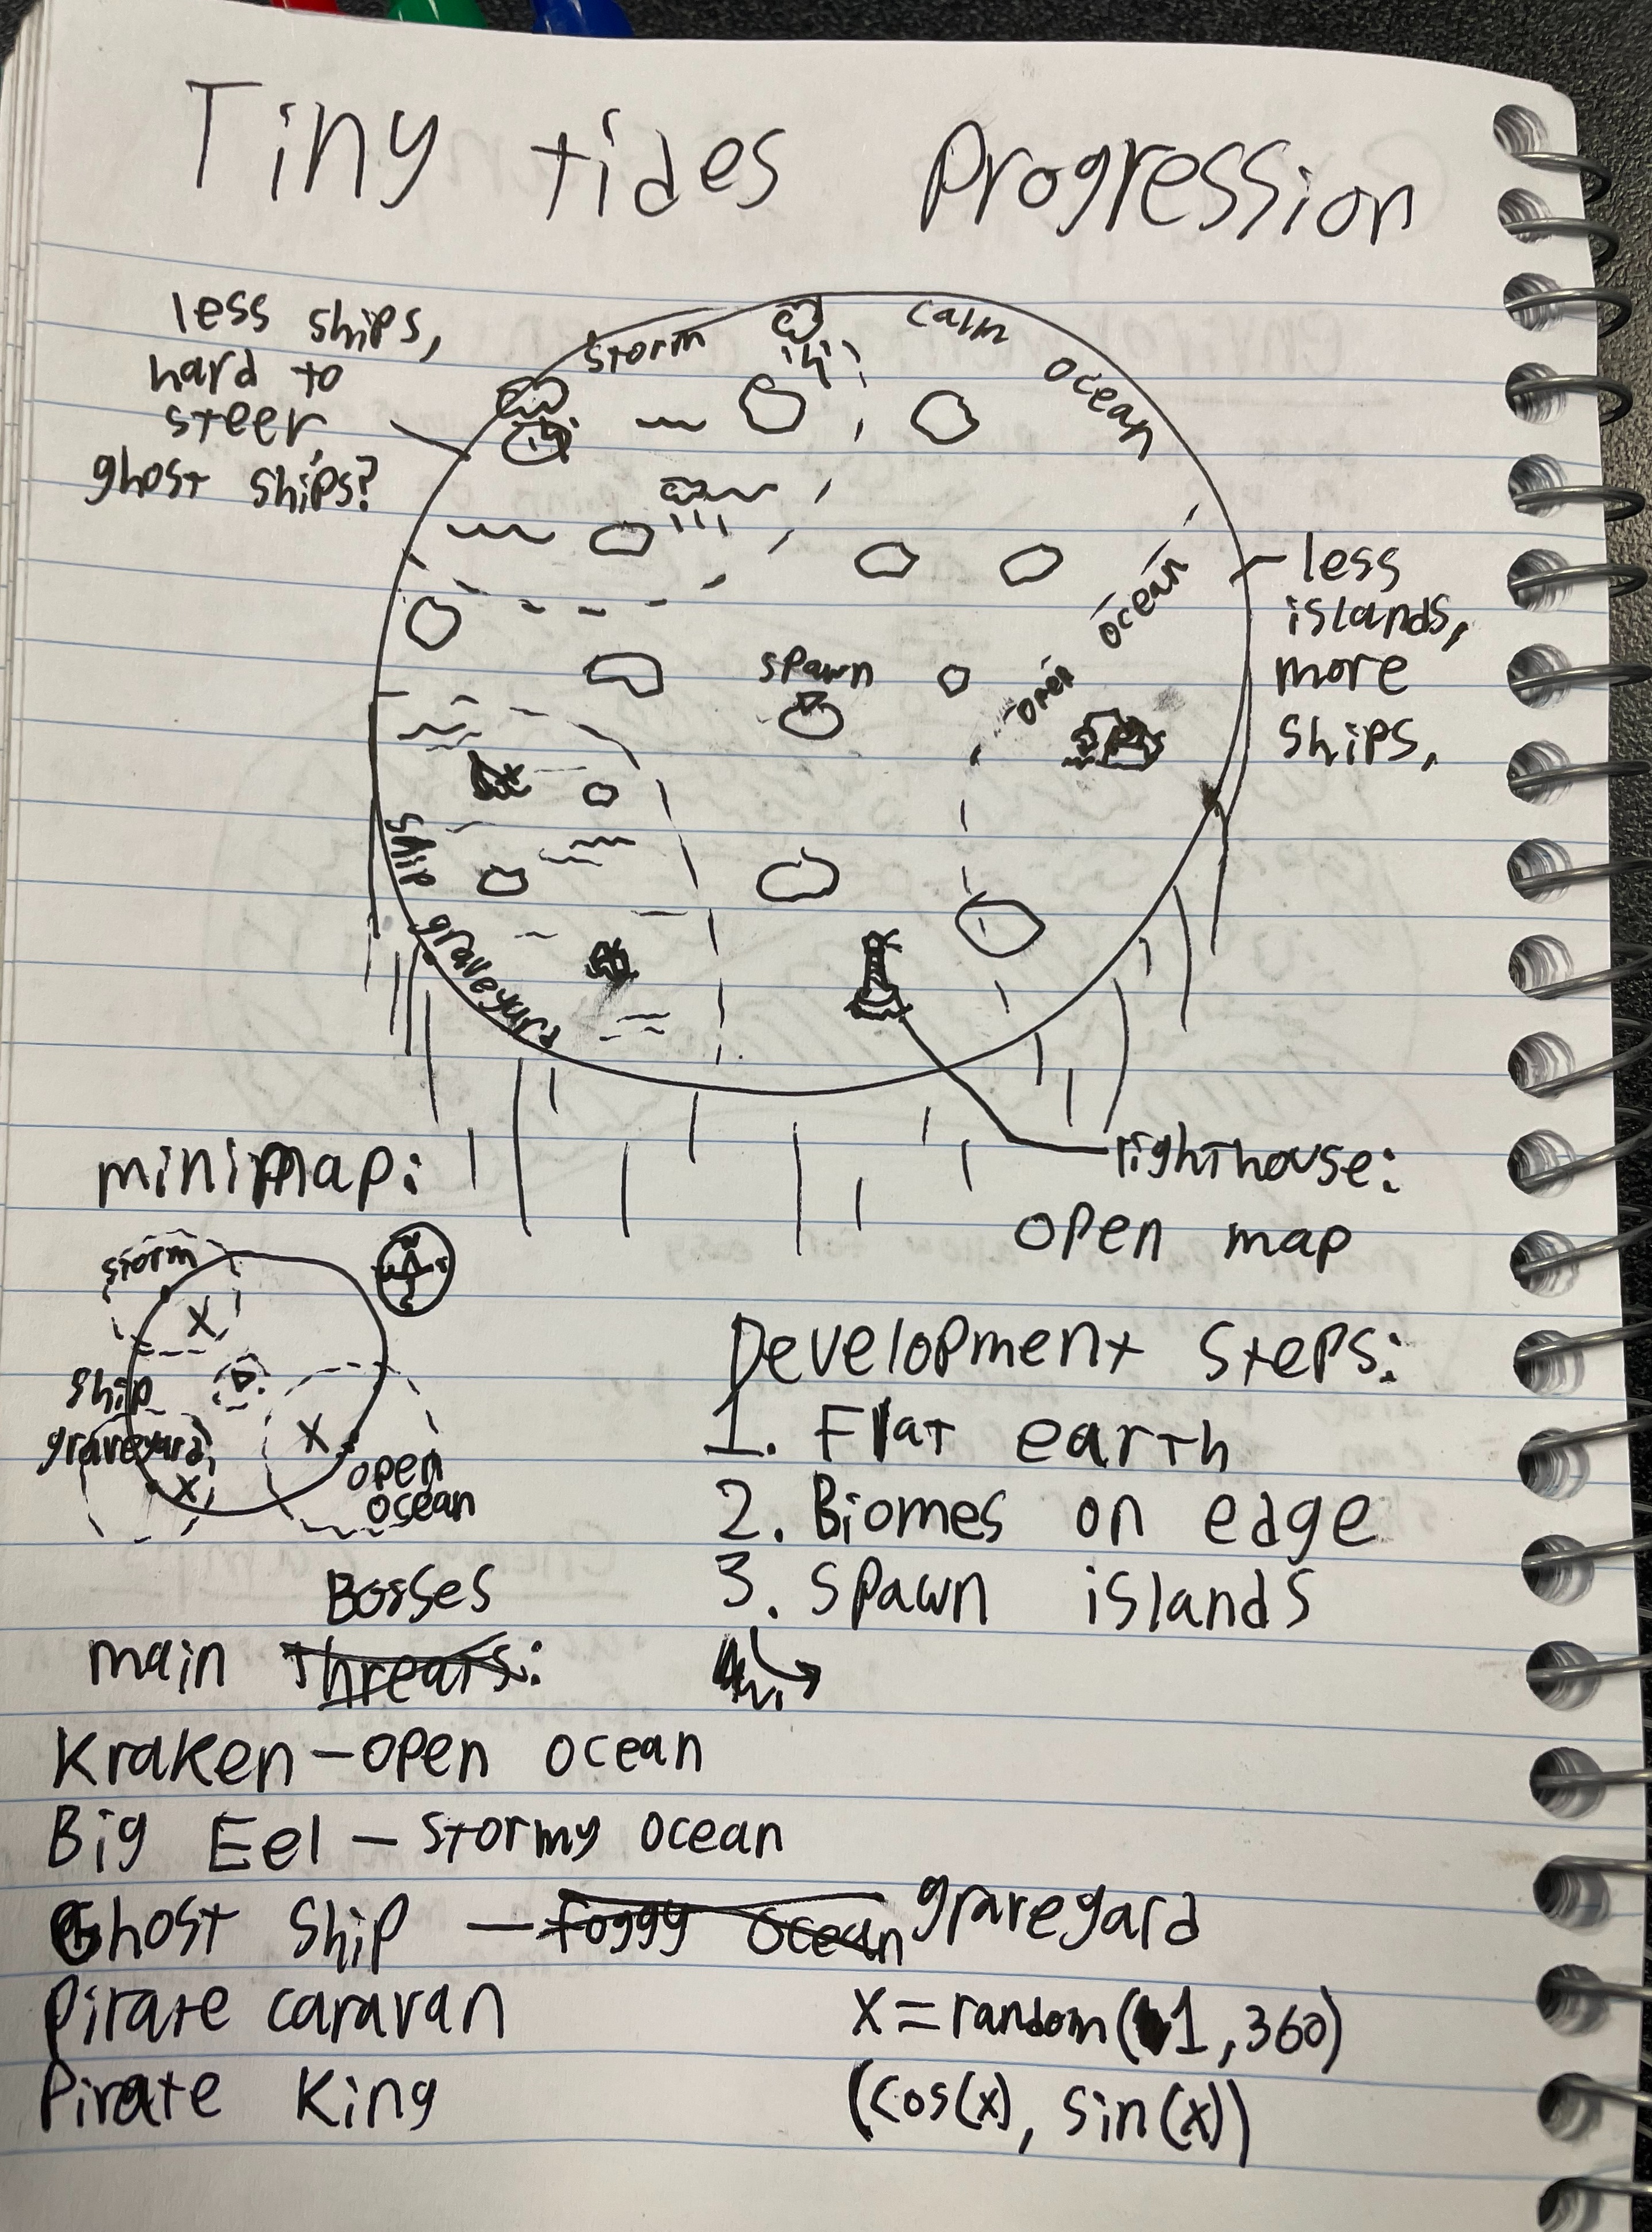 Tiny tides Progression
less ships,
hard to
steer,
ghost ships?
storm
calm
ocean
less
islands,
more
ships,
open ocean
spawn
ship graveyard
lighthouse:
open map
minimap:
storm
ship
graveyard
open
ocean
Development Steps:
1. Flat earth
2. Biomes on edge
3. Spawn islands
Bosses
main threats:
Kraken – open ocean
Big Eel – stormy ocean
Ghost Ship – foggy ocean graveyard
Pirate caravan
Pirate King
x = random(1, 360)
(cos(x), sin(x))